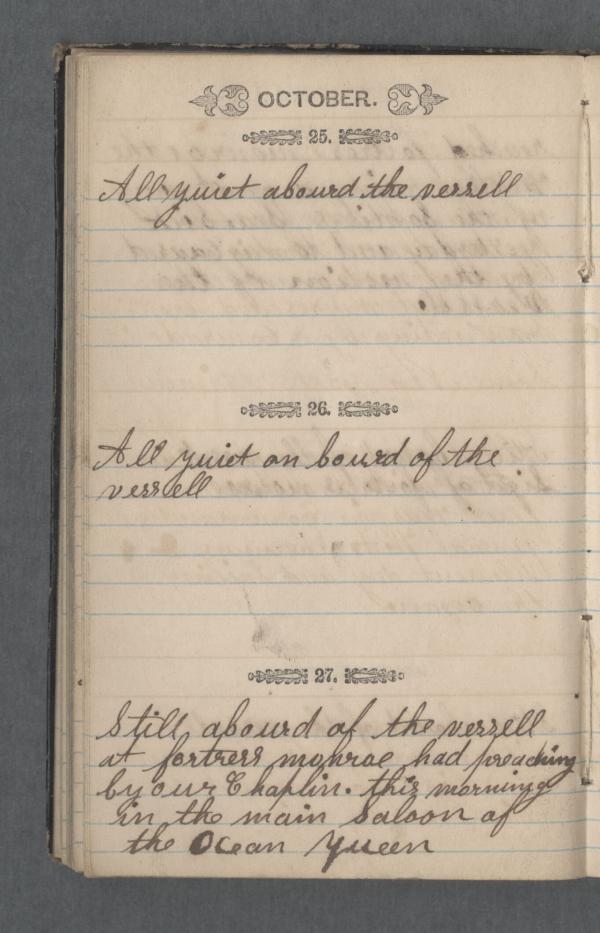 OCTOBER.
25.
All quiet abourd the verzell
26.
All quiet on bourd of the
verzell
27.
Still abourd of the verzell
at fortress monroe had preaching
by our Chaplin. this morning
in the main Saloon of
the Ocean Queen